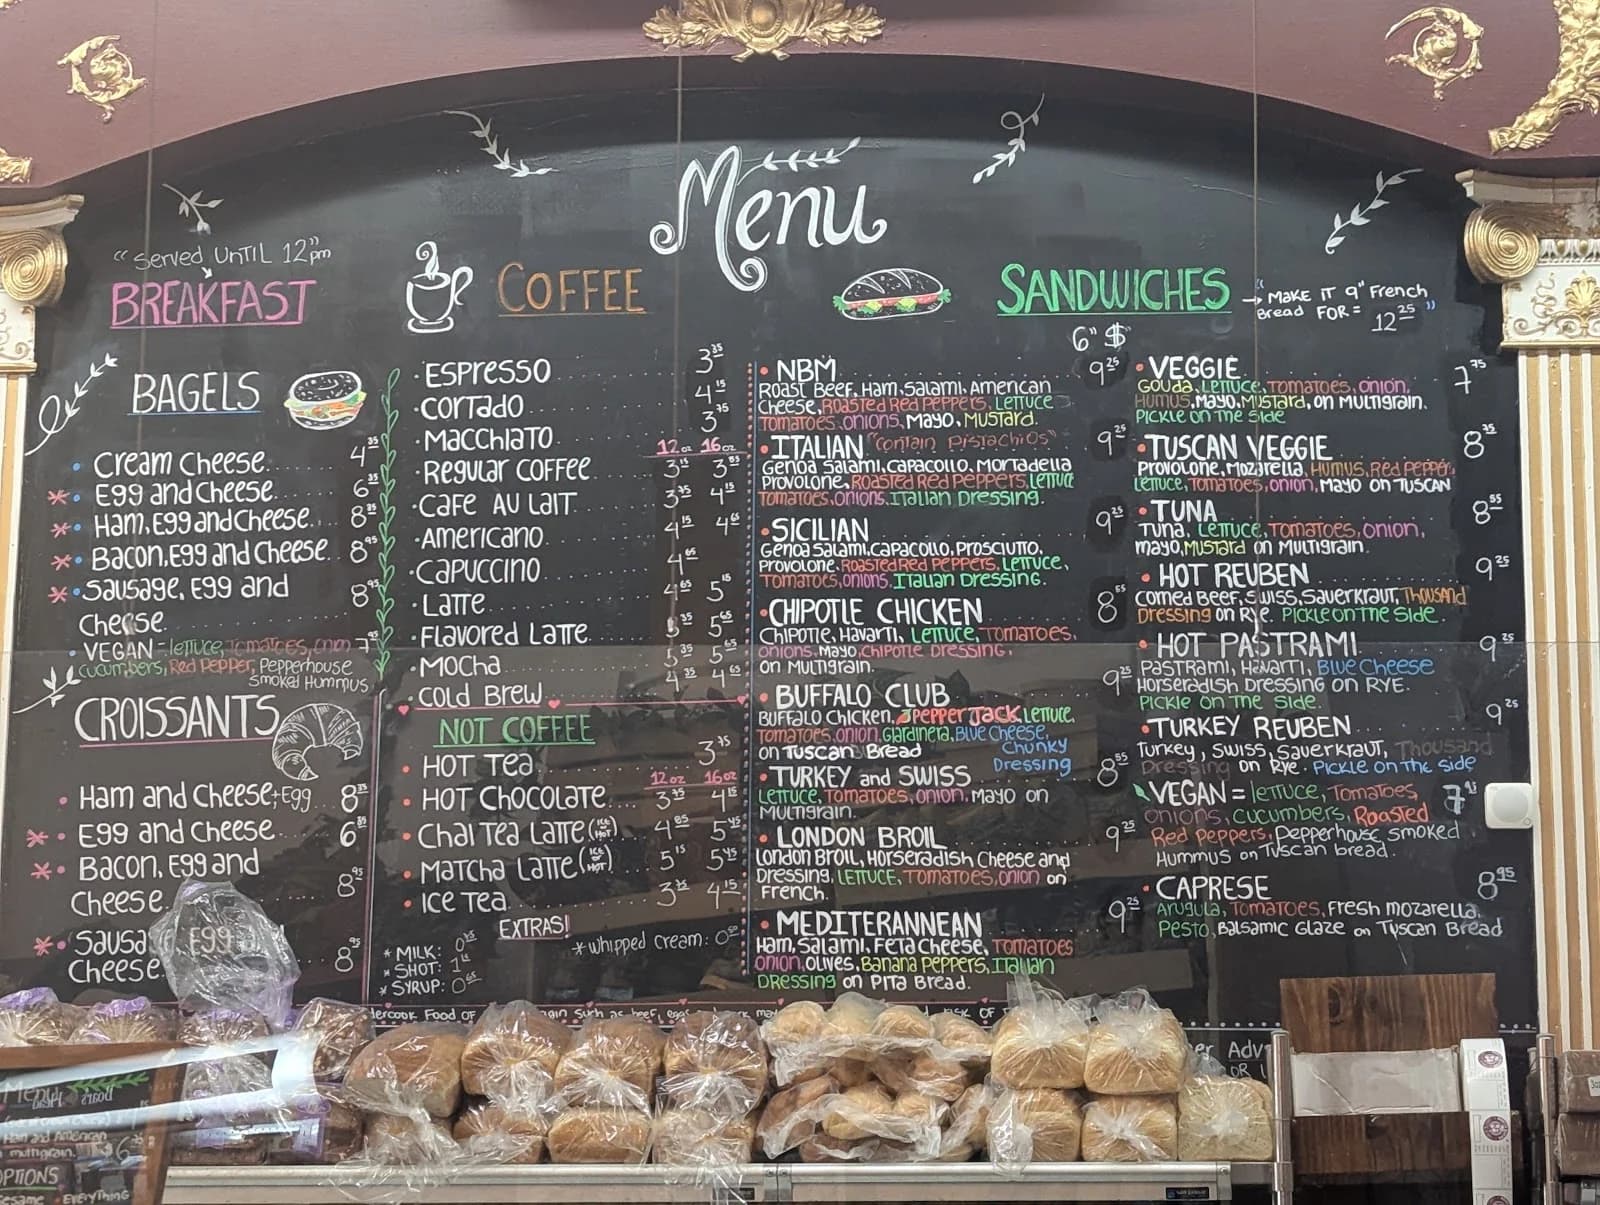 Menu
"Served UNTIL 12pm"
BREAKFAST
BAGELS
• Cream Cheese 4.35
* • Egg and Cheese 6.35
* • Ham, Egg and Cheese 8.35
* • Bacon, Egg and Cheese 8.95
* • Sausage, Egg and 8.95
Cheese
• VEGAN - lettuce, Tomatoes, onion 7.95
cucumbers, Red Pepper, Pepperhouse
Smoked Hummus
CROISSANTS
• Ham and Cheese, + Egg 8.35
* • Egg and Cheese 6.35
* • Bacon, Egg and
Cheese 8.95
* • Sausa Egg
Cheese 8.95
COFFEE
• Espresso 3.35
• Cortado 4.15
• Macchiato 3.75
12oz 16oz
• Regular Coffee 3.15 3.85
• Cafe Au Lait 3.75 4.15
• Americano 4.15 4.65
• Capuccino 4.65
• Latte 4.65 5.15
• Flavored Latte 5.35 5.65
• Mocha 5.35 5.65
• Cold Brew 4.35 4.65
NOT COFFEE
• Hot Tea 3.75
12oz 16oz
• Hot Chocolate 3.95 4.15
• Chai Tea Latte (ICE or HOT) 4.85 5.45
• Matcha Latte (ICE or HOT) 5.15 5.45
• Ice Tea 3.75 4.15
EXTRAS!
* MILK: 0.75
* SHOT: 1
* SYRUP: 0.65
* Whipped Cream: 0.50
SANDWICHES
→ "MAKE IT 9" French
Bread FOR = 12.25"
6" $
• NBM 9.25
Roast Beef, Ham, Salami, American
Cheese, Roasted Red Peppers, Lettuce
Tomatoes, onions, Mayo, Mustard.
• ITALIAN "contain Pistachios" 9.25
Genoa Salami, Capacollo, Mortadella
Provolone, Roasted Red Peppers, Lettuce
Tomatoes, onions, Italian Dressing.
• SICILIAN 9.25
Genoa Salami, Capacollo, Prosciutto,
Provolone, Roasted Red Peppers, Lettuce,
Tomatoes, onions, Italian Dressing.
• CHIPOTLE CHICKEN 8.55
Chipotle, Havarti, Lettuce, Tomatoes,
onions, Mayo, Chipotle Dressing,
on Multigrain.
• BUFFALO CLUB 9.25
Buffalo Chicken, Pepper Jack, Lettuce,
Tomatoes, onion, Giardinera, Blue Cheese,
on Tuscan Bread Chunky
Dressing
• TURKEY and SWISS 8.55
Lettuce, Tomatoes, onion, Mayo on
Multigrain.
• LONDON BROIL 9.25
London Broil, Horseradish Cheese and
Dressing, Lettuce, Tomatoes, onion on
French.
• MEDITERANNEAN 9.25
Ham, Salami, Feta Cheese, Tomatoes
onion, olives, Banana Peppers, Italian
Dressing on Pita Bread.
• VEGGIE 7.75
Gouda, Lettuce, Tomatoes, onion,
Humus, Mayo, Mustard, on Multigrain.
Pickle on the side
• TUSCAN VEGGIE 8.35
Provolone, Mozarella, Humus, Red Pepper,
Lettuce, Tomatoes, onion, Mayo on TUSCAN
• TUNA 8.55
Tuna, Lettuce, Tomatoes, onion,
mayo, Mustard on Multigrain.
• HOT REUBEN 9.25
Corned Beef, Swiss, Sauerkraut, Thousand
Dressing on Rye. Pickle on the Side.
• HOT PASTRAMI 9.25
Pastrami, Havarti, Blue Cheese
Horseradish Dressing on RYE.
Pickle on the side.
• TURKEY REUBEN 9.25
Turkey, Swiss, Sauerkraut, Thousand
Dressing on Rye. Pickle on the side
VEGAN = lettuce, Tomatoes,
onions, cucumbers, Roasted
Red Peppers, Pepperhouse smoked
Hummus on Tuscan bread.
• CAPRESE 8.95
Arugula, Tomatoes, Fresh mozarella,
Pesto, Balsamic Glaze on Tuscan Bread
dercook Food OF gin Such as beef, eggs